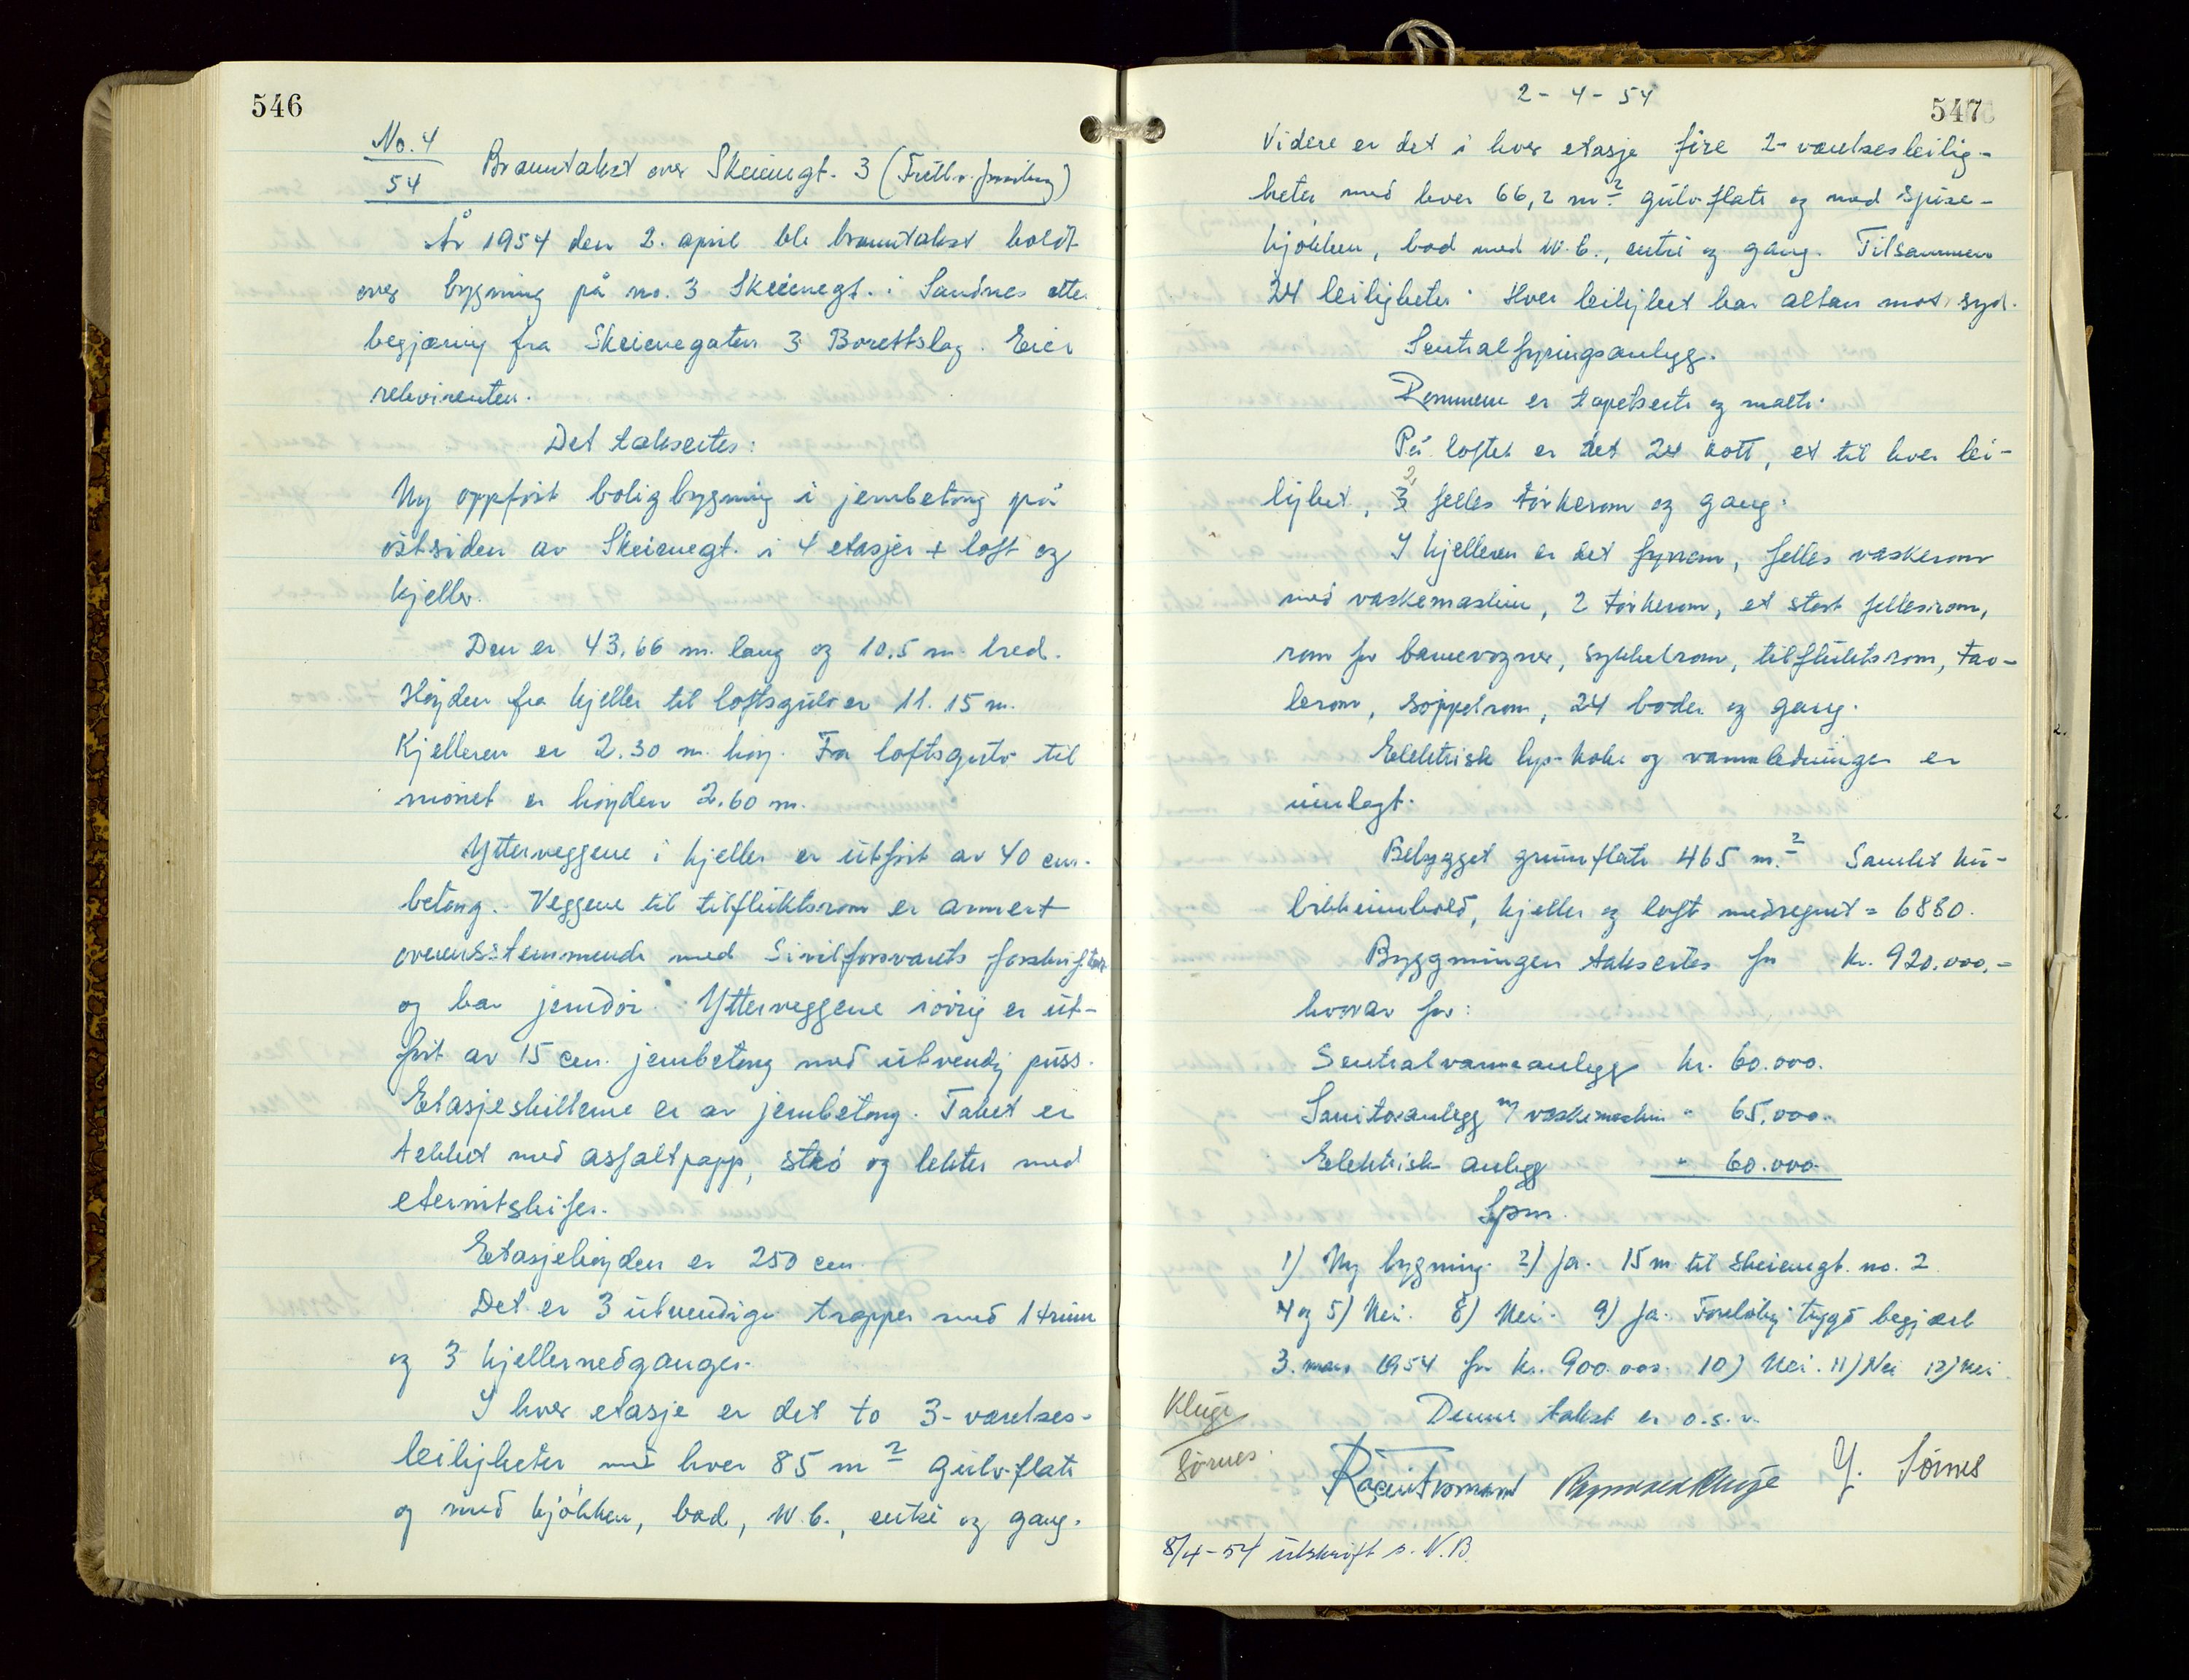 546
No. 4
54
Branntakst over Skeiengt. 3 (Frittl. forsikring)
År 1954 den 2. april ble branntakst holdt
over bygning på no. 3 Skeienegt. i Sandnes etter
begjæring fra Skeienegaten 3 Borettslag. Eier
rekvirenten.
Det taksertes:
Ny oppført boligbygning i jernbetong på
østsiden av Skeienegt. i 4 etasjer + loft og
kjeller.
Den er 43,66 m. lang og 10,5 m. bred.
Høyden fra kjeller til loftsgulv er 11.15 m.
Kjelleren er 2.30 m. høy. Fra loftsgulv til
mønet er høyden 2.60 m.
Ytterveggene i kjeller er utført av 40 cm.
betong. Veggene til tilfluktsrom er armert
overensstemmende med Sivilforsvarets forskrifter
og har jerndør. Ytterveggene iøvrig er ut-
ført av 15 cm. jernbetong med utvendig puss.
Etasjeskillene er av jernbetong. Taket er
tekket med asfaltpapp, strø og lekter med
eternitskifer.
Etasjehøyden er 250 cm.
Det er 3 utvendige trapper med 1 trinn
og 3 kjellernedganger.
I hver etasje er det to 3-værelses-
leiligheter med hver 85 m² gulvflate
og med kjøkken, bad, W.C., entré og gang.
2-4-54
547
Videre er det i hver etasje fire 2-værelsesleilig-
heter med hver 66,2 m² gulvflate og med spise-
kjøkken, bad med W.C., entré og gang. Tilsammen
24 leiligheter. Hver leilighet har altan mot syd.
Sentralfyringsanlegg.
Rommene er tapetserte og malte.
På loftet er det 24 kott, et til hver lei-
lighet, 2 felles tørkerom og gang.
I kjelleren er det fyrrom, felles vaskerom
med vaskemaskin, 2 tørkerom, et stort fellesrom,
rom for barnevogner, sykkelrom, tilfluktsrom, tav-
lerom, søppelrom, 24 boder og gang.
Elektrisk lys- koke og vannledninger er
innlagt.
Bebygget grunnflate 465 m.² Samlet ku-
bikkinnhold, kjeller og loft medregnet = 6880.
Byggningen taksertes for kr. 920.000,-
hvorav for:
Sentralvarmeanlegg kr. 60.000.
Sanitæranlegg m/ vaskemaskin " 65.000.
Elektrisk anlegg " 60.000.
Spm.
1) Ny bygning. 2) Ja. 15 m til Skeiengt. no. 2
4 og 5) Nei. 8) Nei. 9) Ja. Foreløbig trygd begjært
3. mars 1954 for kr. 900.000. 10) Nei. 11) Nei 12) Nei.
Denne takst er o.s.v.
Kluge
Sørnes.
Y. Sørnes
8/4-54 utskrift s. N.B.
2.
2.